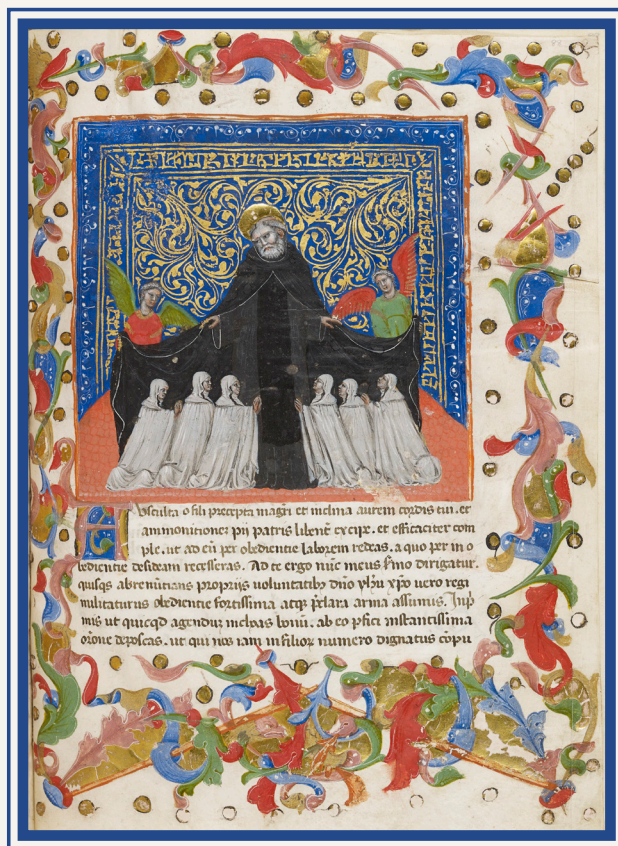 Asculta o fili precepta magri et inclina aurem cordis tui. et
ammonitionez pii patris libent excipe. et efficaciter com
ple. ut ad eu per obedientie laborem redeas. a quo per in o
bedientie desidiam recesseras. Ad te ergo nuc meus smo dirigatur.
quisqs abrenuntians proprijs voluntatibz dno yhu xpo uero regi
militaturus obedientie fortissima atqz pclara arma assumis. Inp
mis ut quicqd agendum inchoas bonu. ab eo pfici instantissima
orone deposcas. ut qui nos iam in filioz numero dignatus e copu